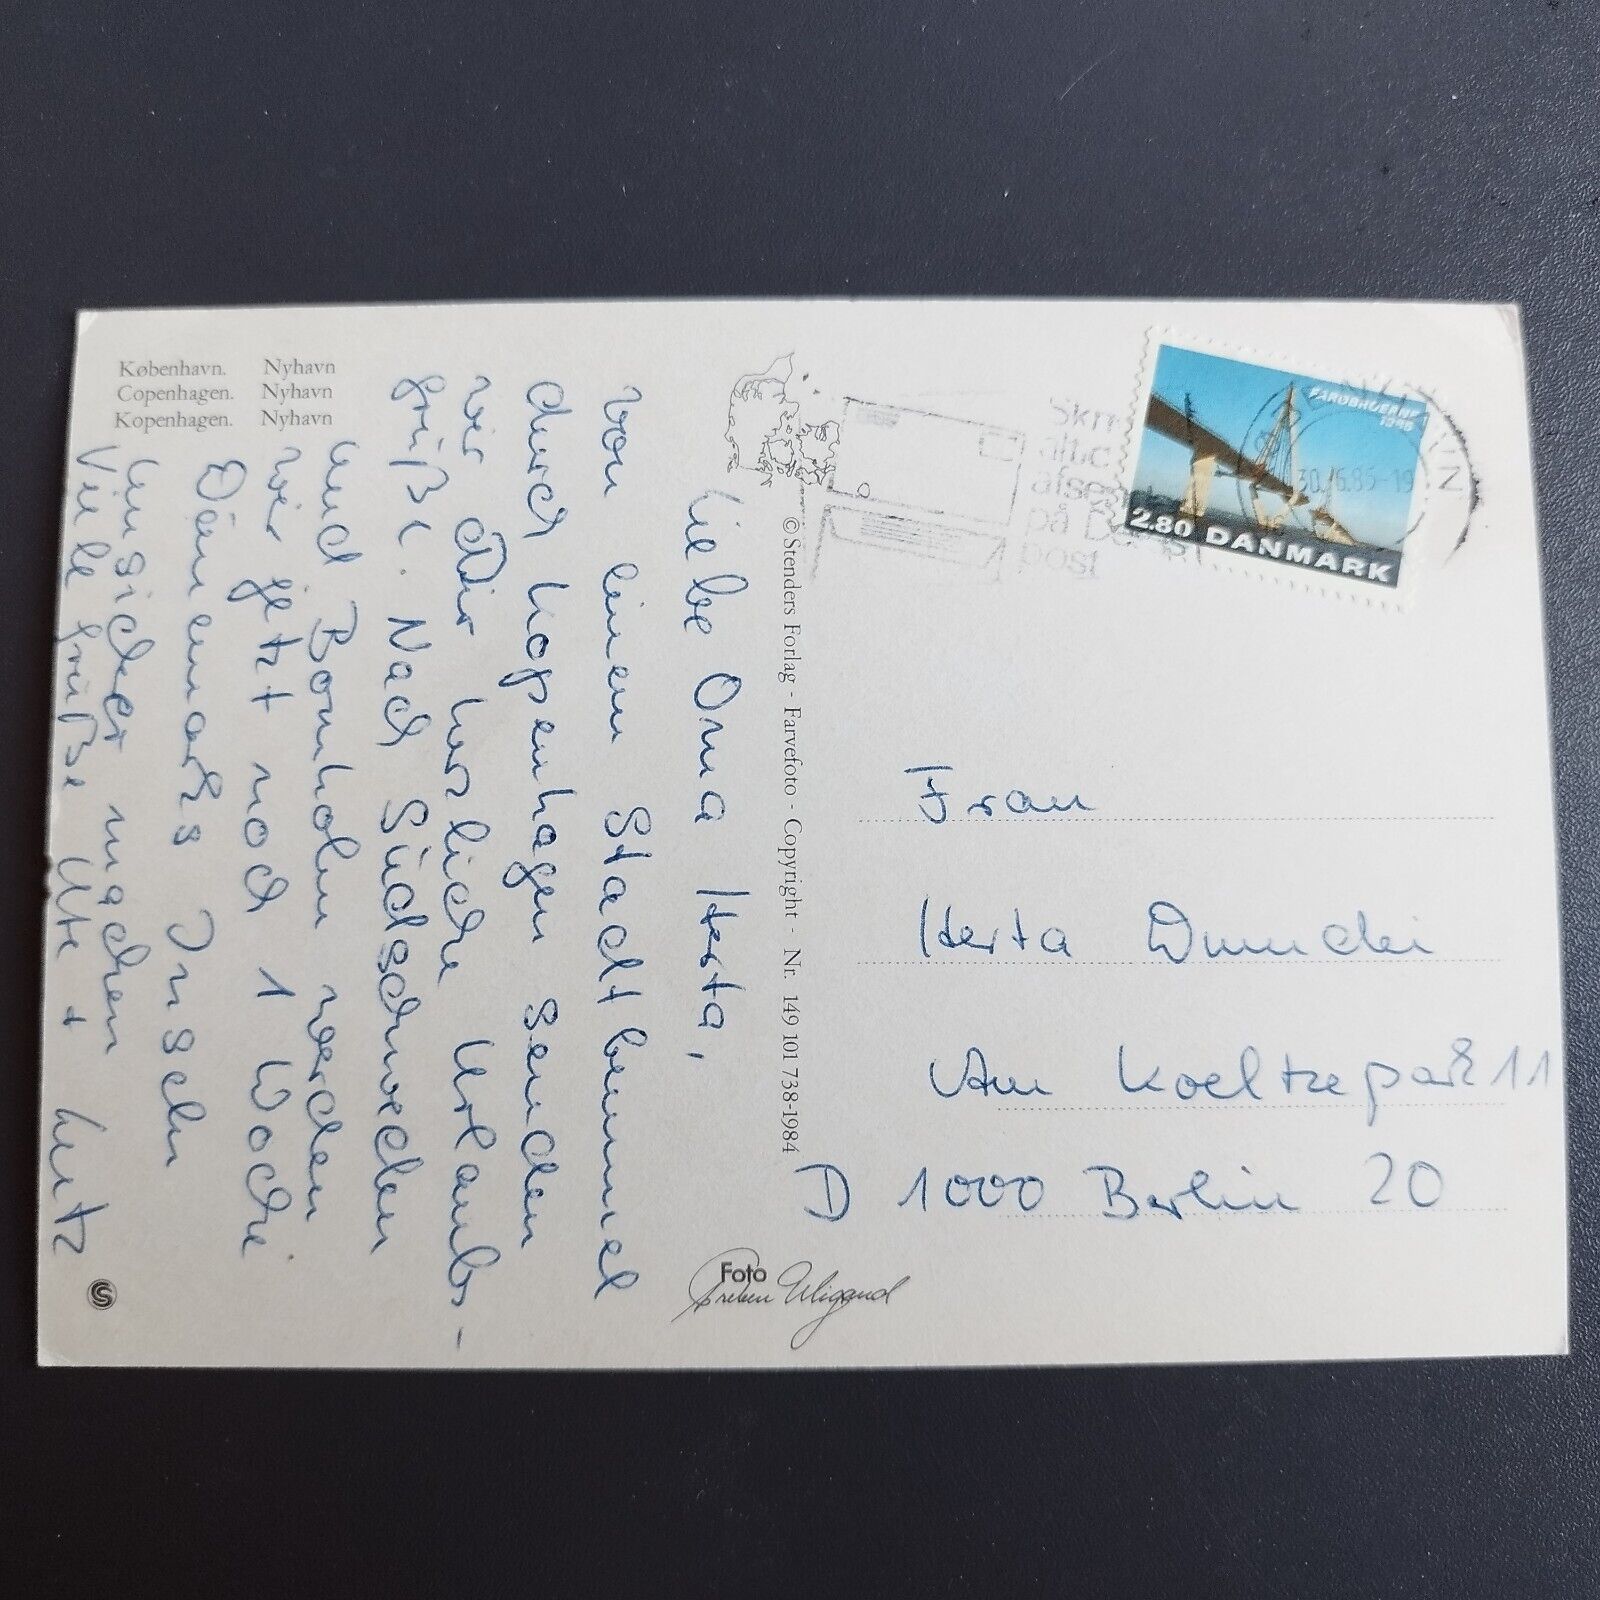 København. Nyhavn
Copenhagen. Nyhavn
Kopenhagen. Nyhavn
Liebe Oma Herta,
von einem Stadtbummel
durch Kopenhagen senden
wir Dir herzliche Urlaubs-
grüße. Nach Südschweden
und Bornholm werden
wir jetzt noch 1 Woche
Dänemarks Inseln
unsicher machen
Viele Grüße Ute + Lutz
© Stenders Forlag - Farvefoto - Copyright - Nr. 149 101 738-1984
Foto
Preben Wigand
altid
på
post
FARØBROERNE
1985
2.80 DANMARK
Frau
Herta
Am Koeltzepark 11
D 1000 Berlin 20